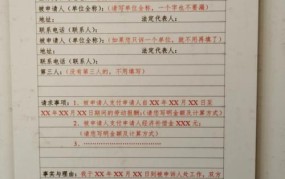 被申请人（单位全称）：（请写单位全称，一个字也不要漏）
地址： 法定代表人：
联系电话（联系人）：
被申请人（单位全称）：（如果您只诉一个单位，就不用再填了）
地址： 法定代表人：
联系电话（联系人）：
第三人：（没有第三人的，不用填写）
请求事项：1、被申请人支付申请人自 XX 年 XX 月 XX 日至
XX 年 XX 月 XX 日期间的劳动报酬；（请您写明金额及计算方式）
2、被申请人支付申请人经济补偿金 XXX 元；
（请您写明金额及计算方式）
3、
事实与理由：我于 XX 年 XX 月 XX 日到被申请人处工作，双方